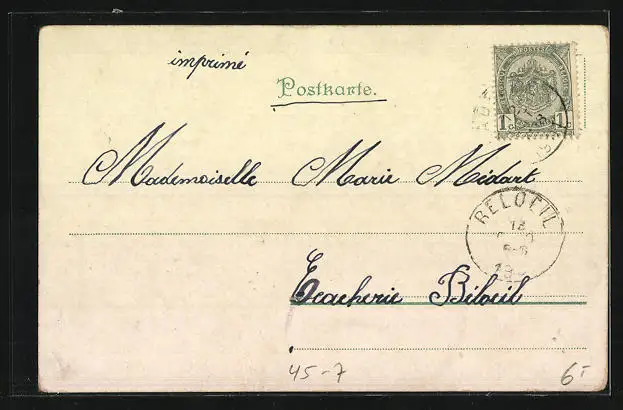 imprimé
Postkarte.
1 1
Mademoiselle Marie Médart
BELOEIL
12
6-6
Ecacherie Béloeil
45-7 6